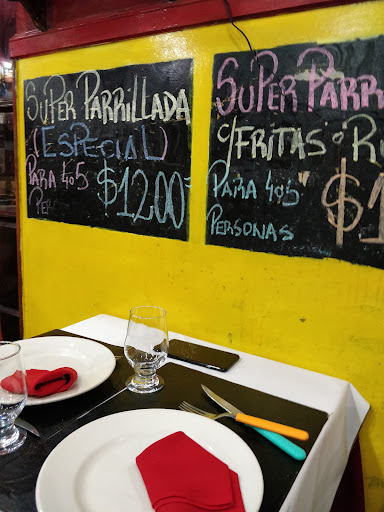 SUPER PARRILLADA
(ESPECIAL)
PARA 4o5 $1200
PER
SUPER PARR
c/FRITAS o R
PARA 4o5 $1
PERSONAS